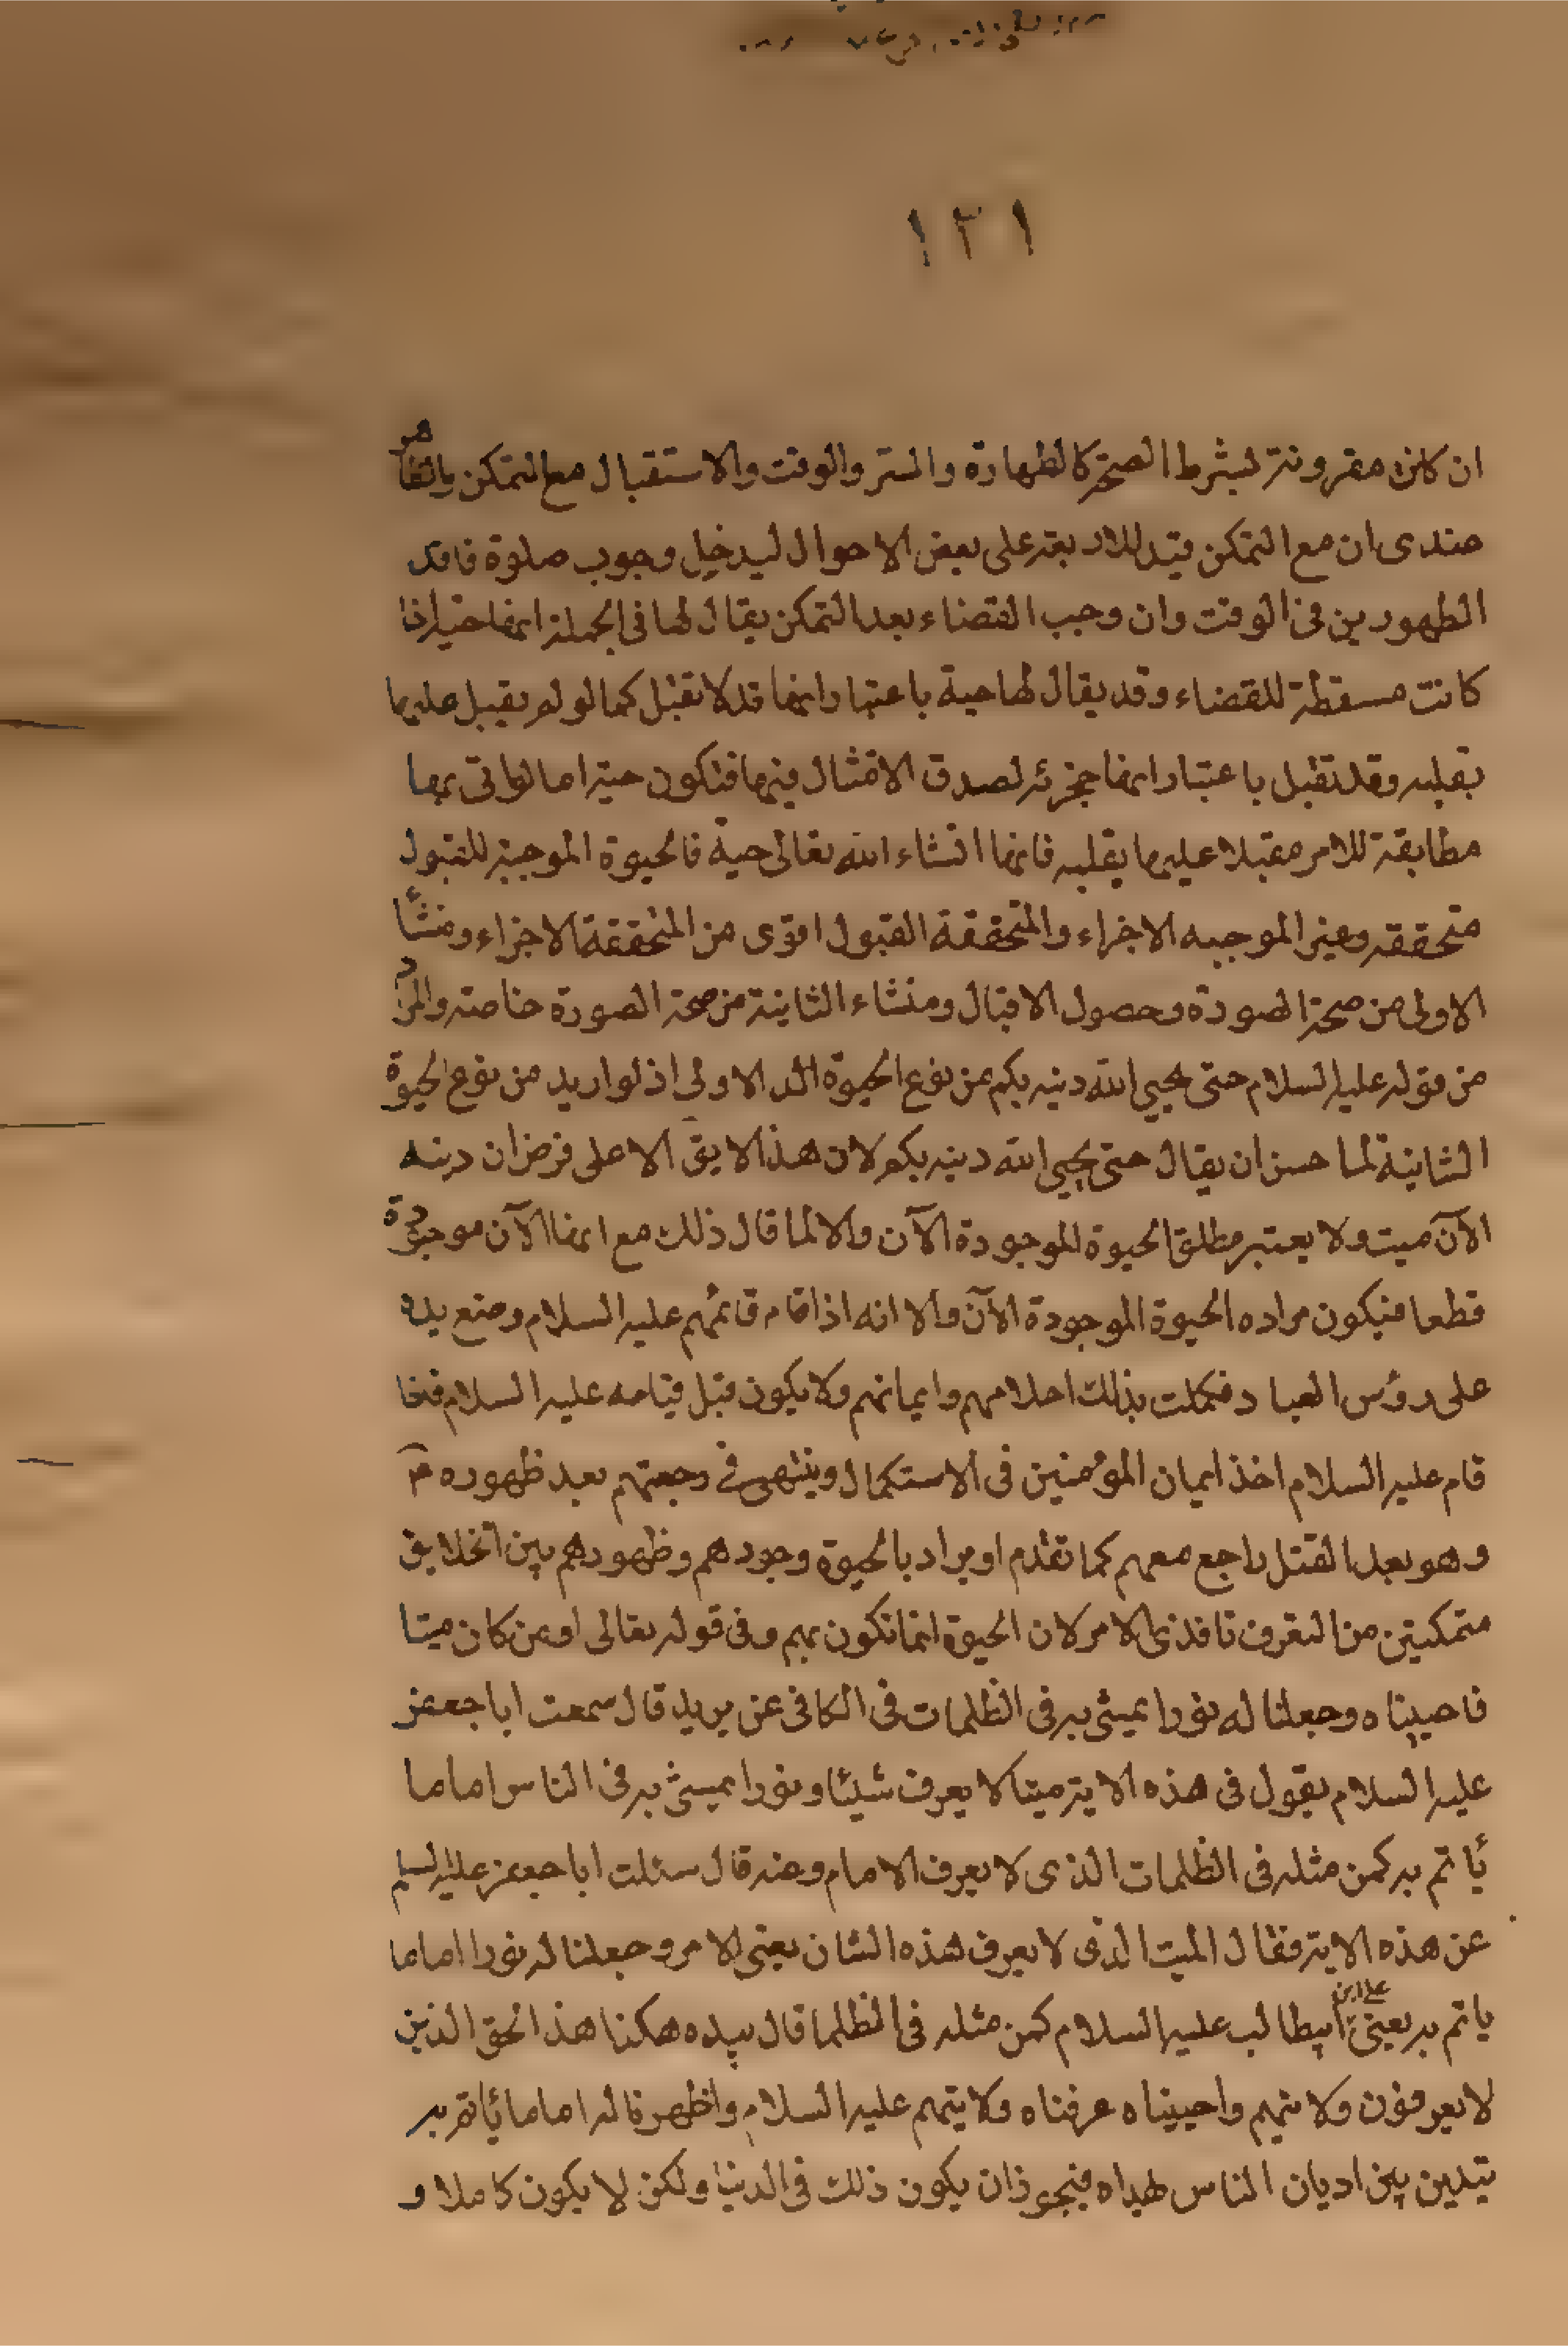 ١٣١
ان كانت مقرونة بشرط الصحة كالطهارة والستر والوقت والاستقبال مع التمكن بالظاهر
عندى ان مع التمكن قيد للاربعة على بعض الاحوال ليدخل وجوب صلوة فاقد
الطهورين فى الوقت وان وجب القضاء بعد التمكن يقال لها فى الجملة انها حية اذا
كانت مسقطة للقضاء وقد يقال لها حية باعتبار انها قد لا تقبل كما لو لم يقبل عليها
بقلبه وقد تقبل باعتبار انها مجزئة لصدق الامتثال فيها فتكون حية اما لو اتى بها
مطابقة للامر مقبلا عليها بقلبه فانها انشاء الله تعالى حية فالحيوة الموجبة للقبول
متحققة وغير الموجبه الاجزاء والمتحققة القبول اقوى من المتحققة الاجزاء ومنشأ
الاولى من صحة الصورة وحصول الاقبال ومنشاء الثانية من صحة الصورة خاصة والمراد
من قوله عليه السلام حتى يحيي الله دينه بكم عن نوع الحيوة الاولى اذ لو اريد من نوع الحيوة
الثانية لما حسن ان يقال حتى يحيي الله دينه بكم لان هذا لا يق الا على فرض ان دينه
الآن ميت ولا يعتبر مطلق الحيوة الموجودة الآن والا لما قال ذلك مع انها الآن موجودة
قطعا فيكون مراده الحيوة الموجودة الآن والا انه اذا قام قائمهم عليه السلام وضع يده
على رؤس العباد فكملت بذلك احلامهم وايمانهم ولا يكون قبل قيامه عليه السلام فاذا
قام عليه السلام اخذ ايمان المؤمنين فى الاستكمال وينتهى فى رجعتهم بعد ظهوره م
وهو بعد القتل راجع معهم كما تقدم او يراد بالحيوة وجودهم وظهورهم بين الخلايق
متمكنين من التعرف نافذى الامر لان الحيوة انما تكون بهم وفى قوله تعالى اومن كان ميتا
فاحييناه وجعلنا له نورا يمشى به فى الظلمات فى الكافى عن بريد قال سمعت ابا جعفر
عليه السلام يقول فى هذه الاية ميتا لا يعرف شيئا ونورا يمشى به فى الناس اماما
يأتم به كمن مثله فى الظلمات الذى لا يعرف الامام وعنه قال سئلت ابا جعفر عليه السلم
عن هذه الاية فقال الميت الذى لا يعرف هذه الشان يعنى الامر وجعلنا له نورا اماما
ياتم به يعنى على ابن ابيطالب عليه السلام كمن مثله فى الظلما قال بيده هكذا هذا الخلق الذين
لا يعرفون ولا منهم واحييناه عرفناه ولايتهم عليه السلام واظهرنا له اماما يأتم به
يتدين بين اديان الناس لهداه فيجوز ان يكون ذلك فى الدنيا ولكن لا يكون كاملا و